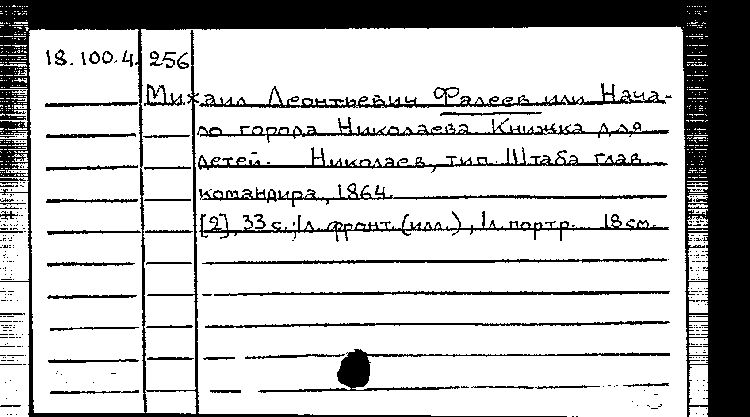 18.100.4. 256
Михаил Леонтьевич Фалеев или Нача-
ло города Николаева. Книжка для
детей. Николаев, тип. Штаба глав.
командира, 1864.
[2], 33 с.; 1л. фронт. (илл.), 1л. портр. 18 см.